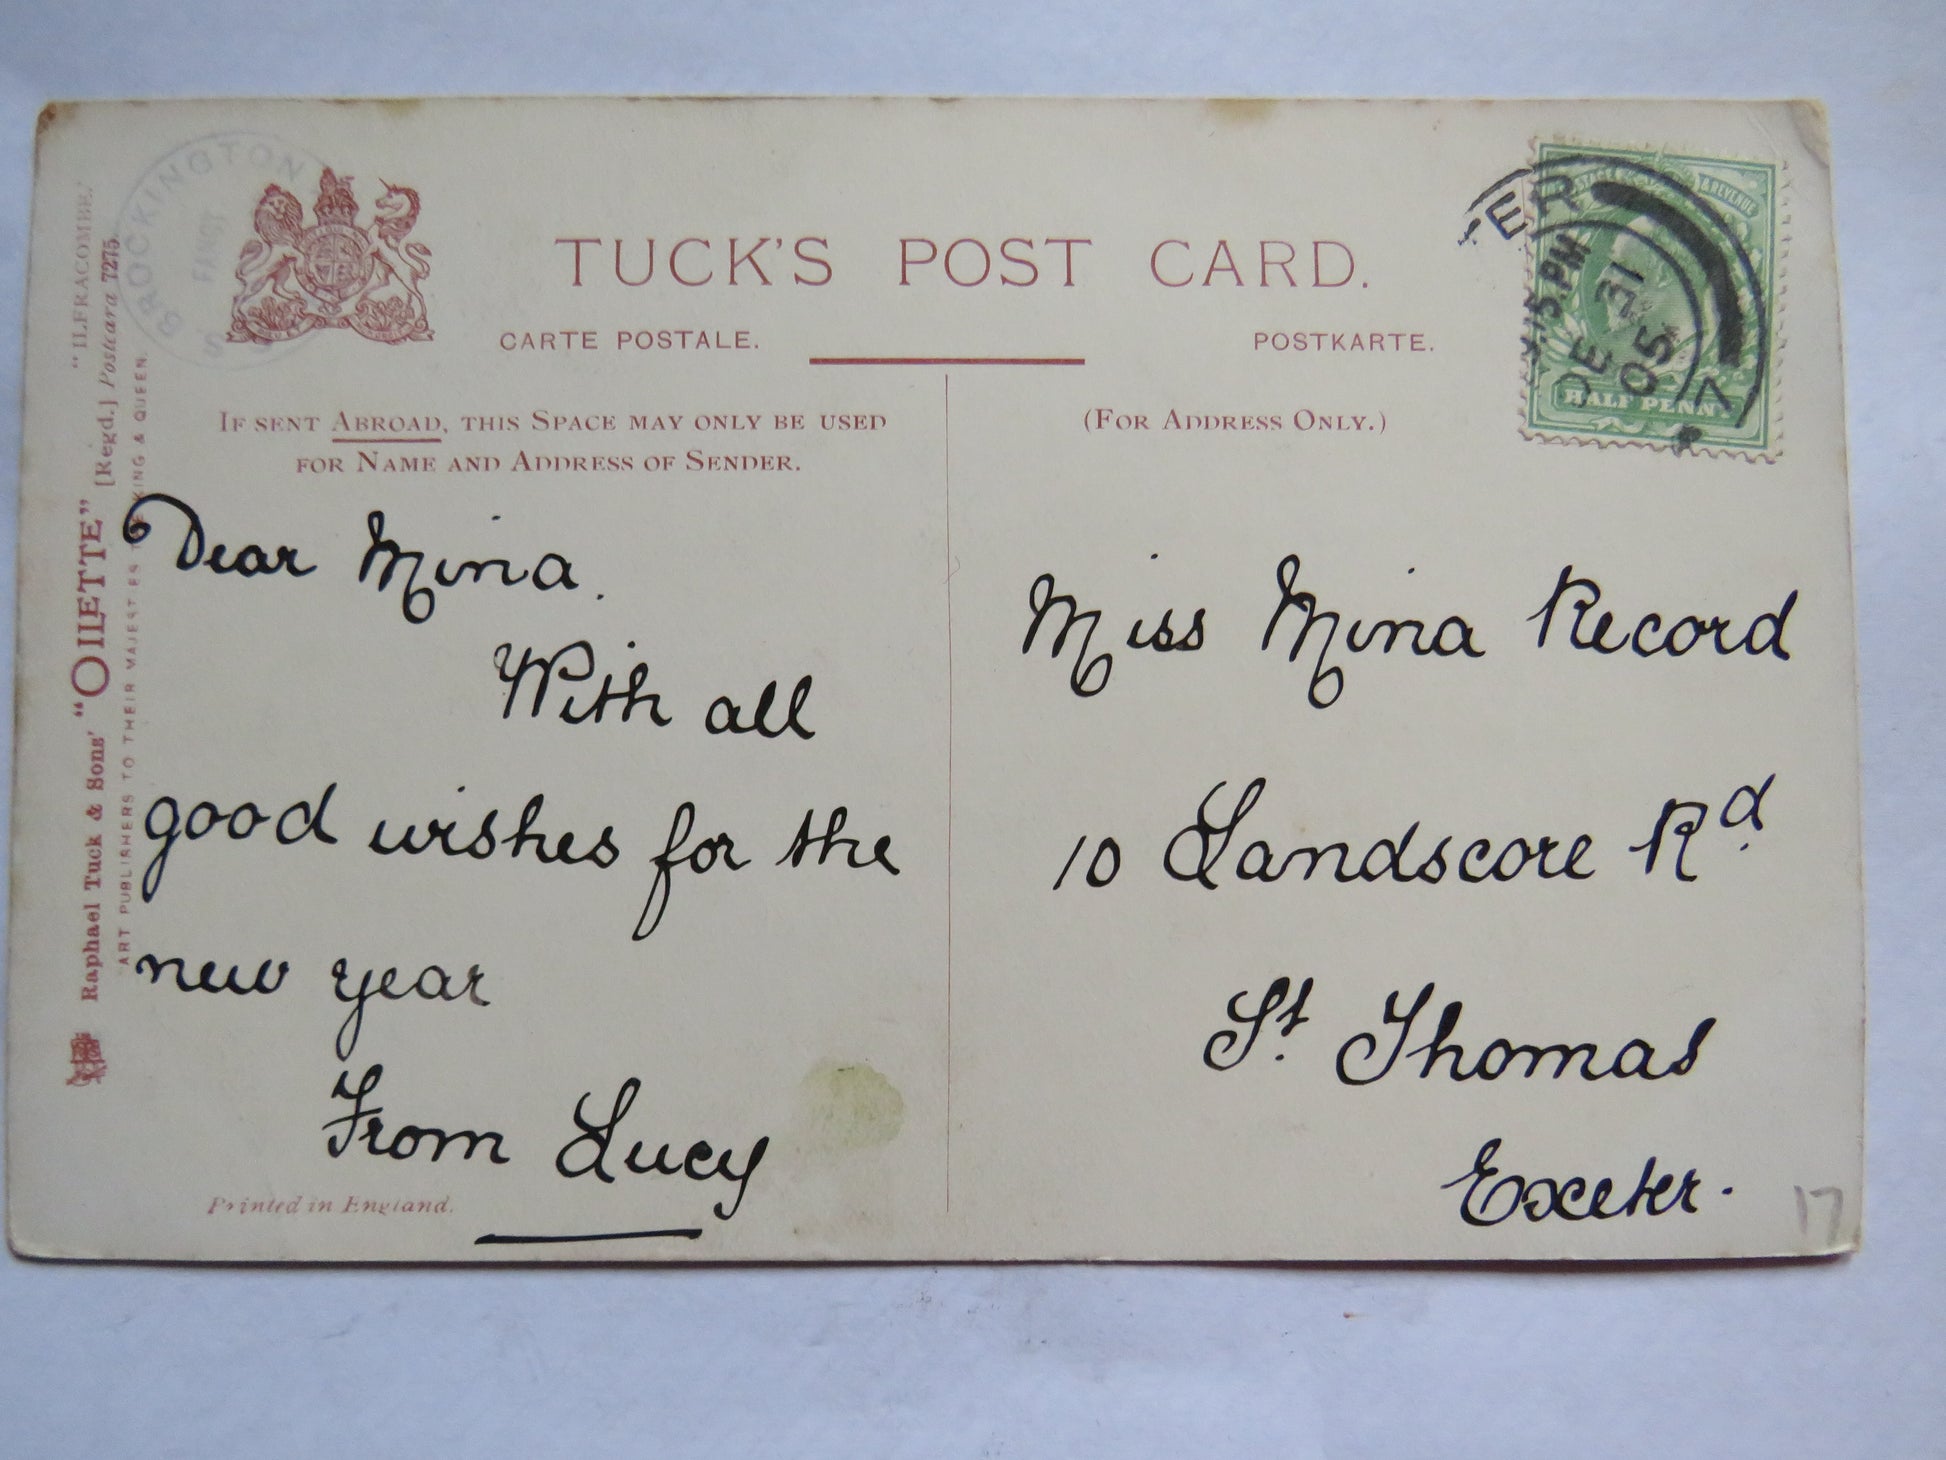 TUCK'S POST CARD.
CARTE POSTALE.
POSTKARTE.
IF SENT ABROAD, THIS SPACE MAY ONLY BE USED
FOR NAME AND ADDRESS OF SENDER.
(FOR ADDRESS ONLY.)
Dear Mina.
With all
good wishes for the
new year
From Lucy
Miss Mina Record
10 Landscore Rd.
St. Thomas
Exeter.
Printed in England.
17
"ILFRACOMBE."
Raphael Tuck & Sons' "OILETTE" [Regd.] Postcard 7275
ART PUBLISHERS TO THEIR MAJESTIES THE KING & QUEEN.
BROCKINGTON
S.S
POSTAGE & REVENUE
HALF PENNY
ER
.15.PM
DE 31
05
7